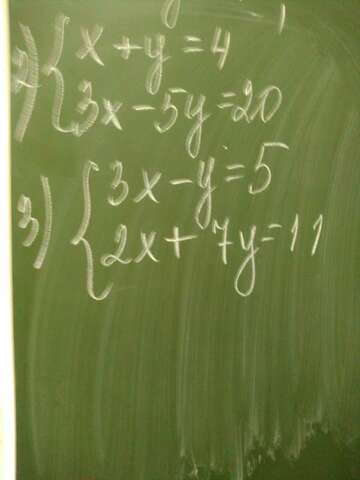 2) { x + y = 4
3x - 5y = 20
3) { 3x - y = 5
2x + 7y = 11